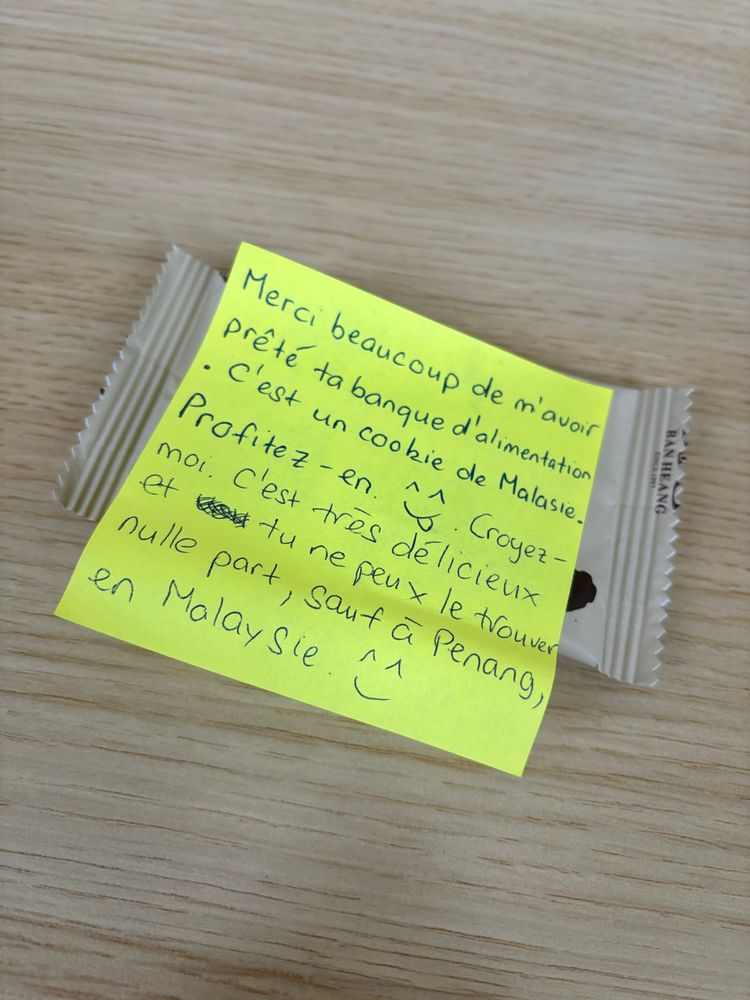 Merci beaucoup de m'avoir
prêté ta banque d'alimentation
. C'est un cookie de Malasie.
Profitez-en. ^^ . Croyez-
moi. C'est très délicieux
et tu ne peux le trouver
nulle part, sauf à Penang,
en Malaysie. ^^
BAN HEANG
SINCE 1997